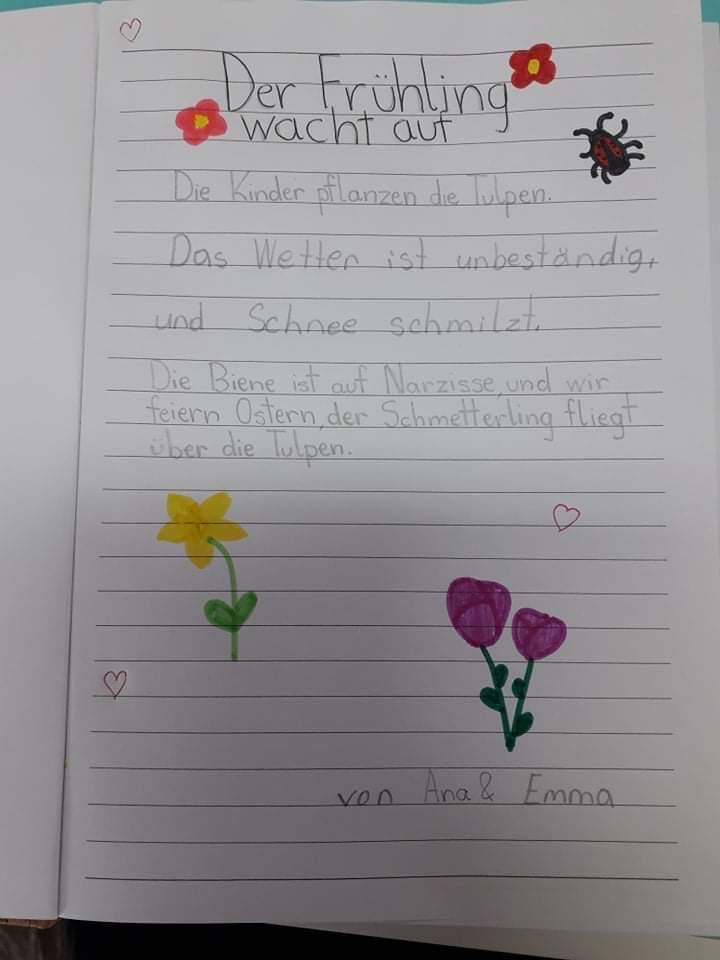 Der Frühling
wacht auf
Die Kinder pflanzen die Tulpen.
Das Wetter ist unbeständig,
und Schnee schmilzt.
Die Biene ist auf Narzisse, und wir
feiern Ostern, der Schmetterling fliegt
über die Tulpen.
von Ana & Emma